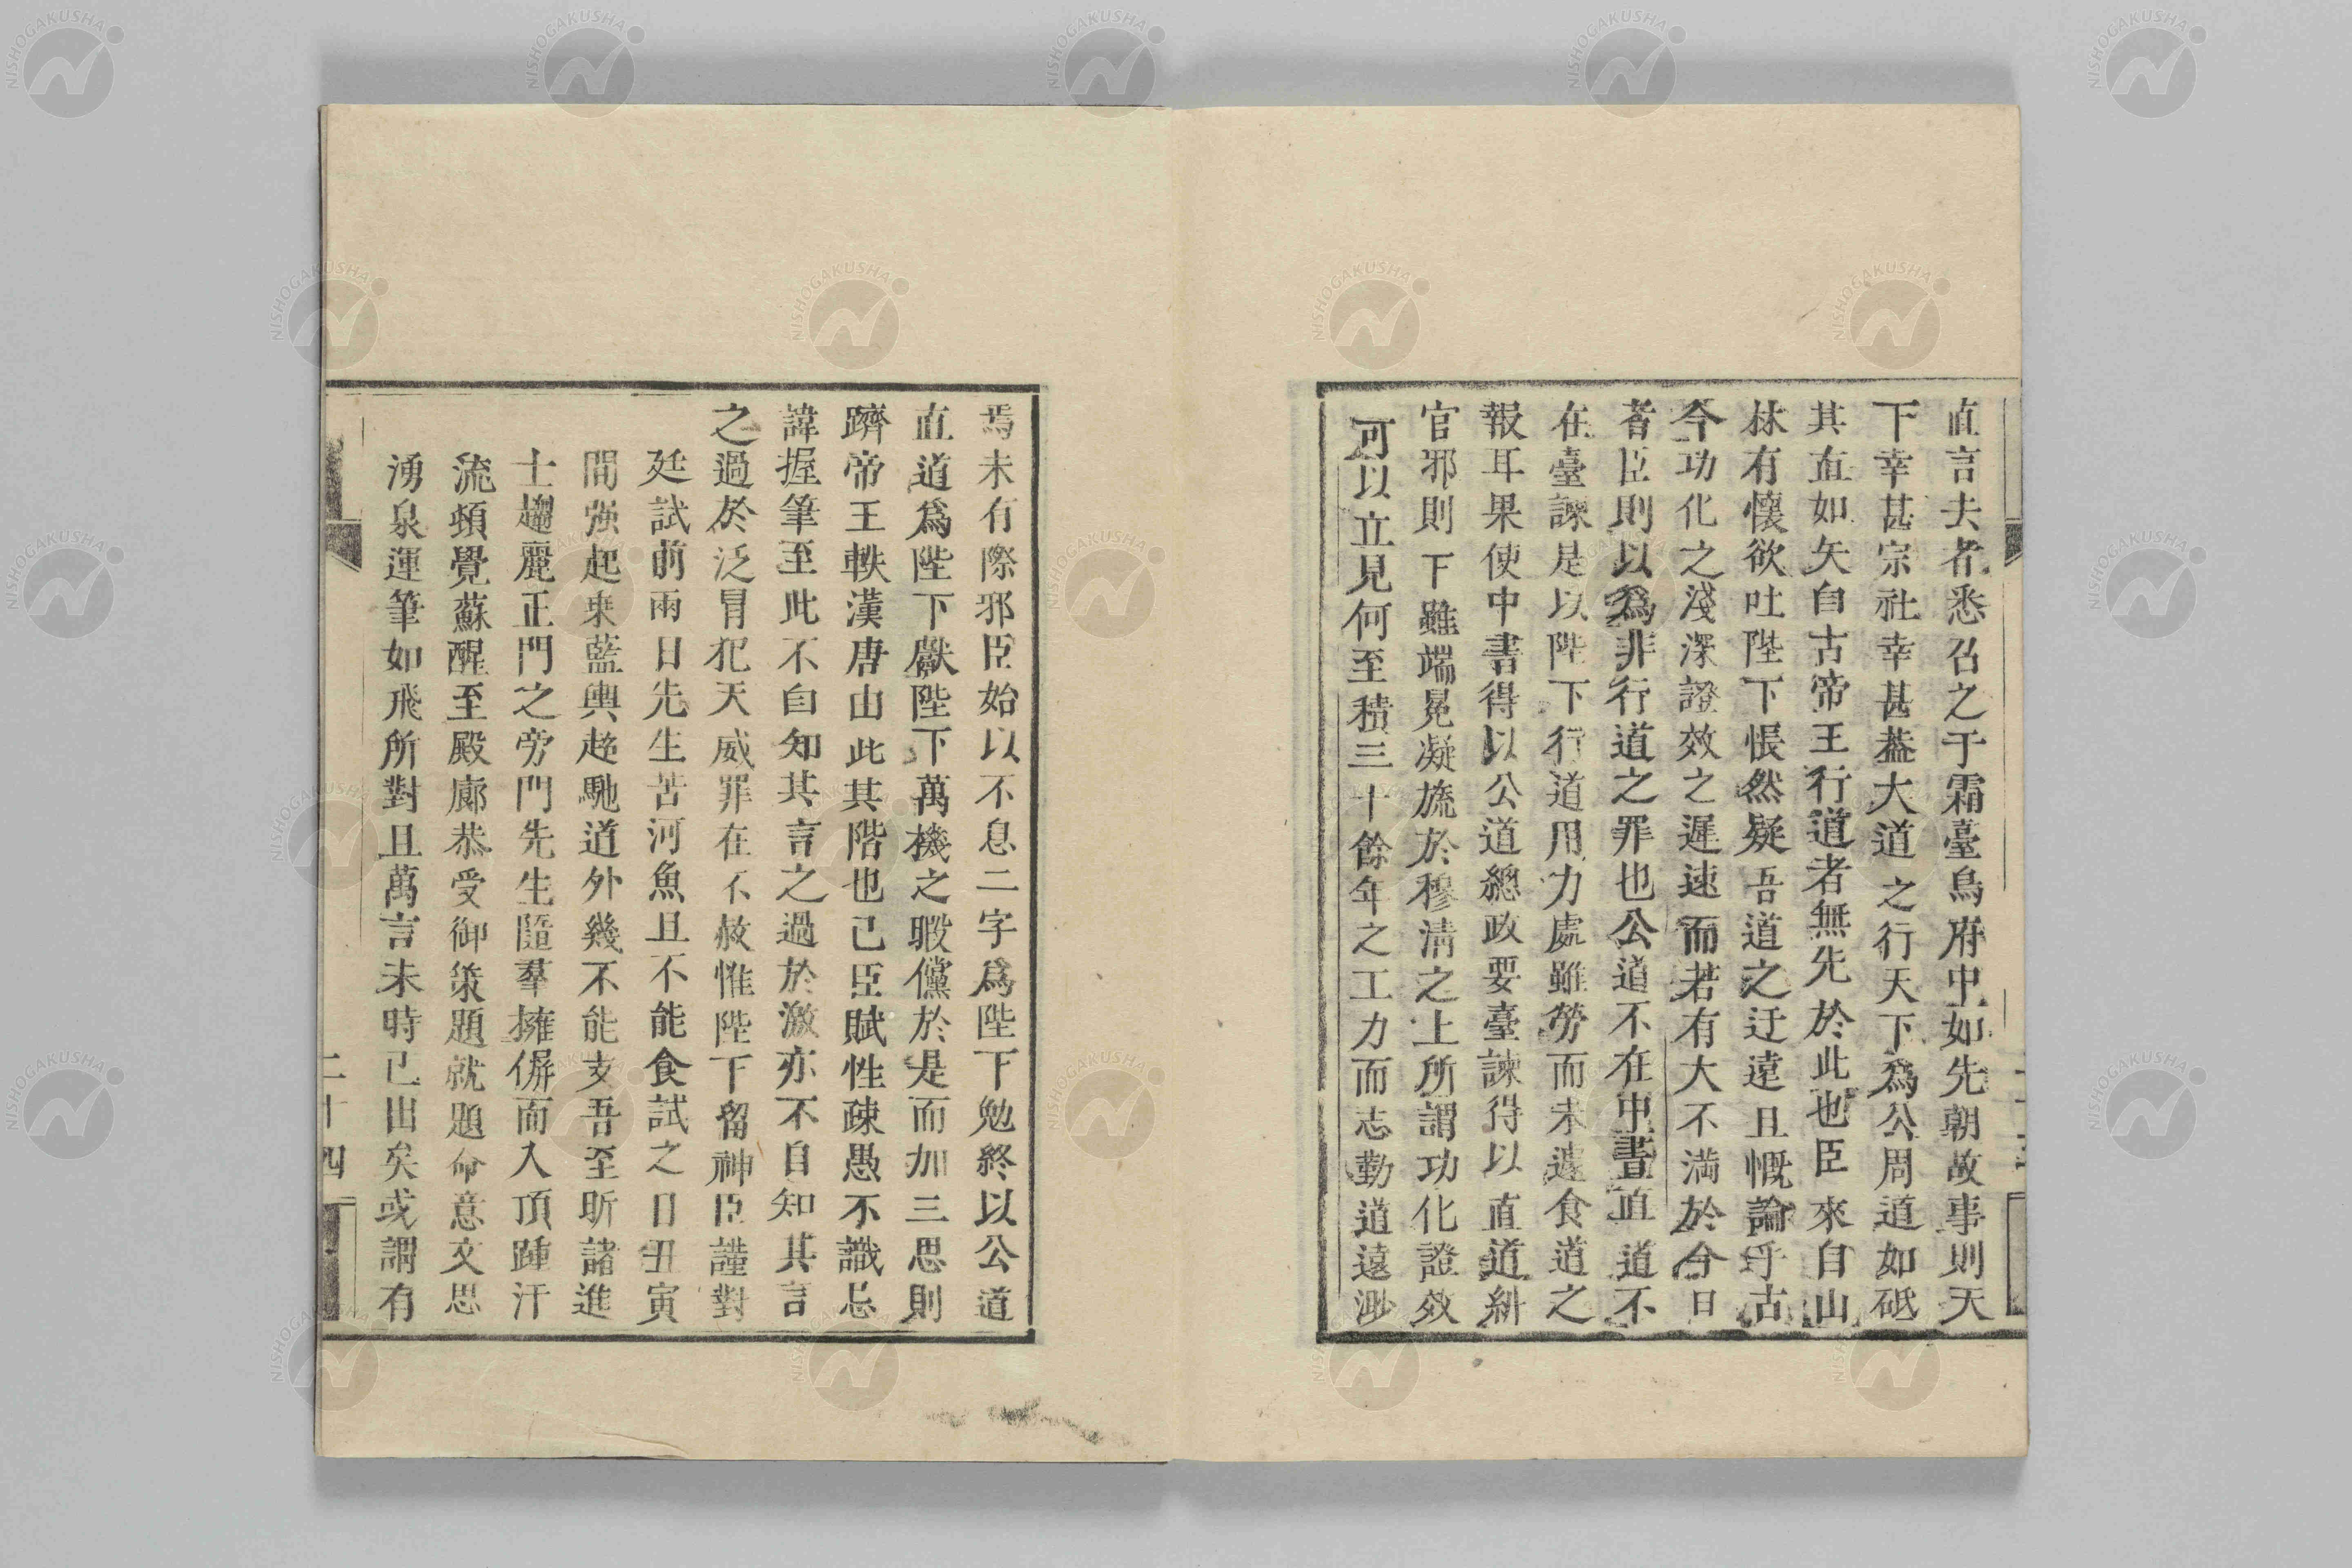 直言夫者悉召之于霜臺烏府中如先朝故事則天
下幸甚宗社幸甚葢大道之行天下爲公周道如砥
其直如矢自古帝王行道者無先於此也臣來自山
林有懷欲吐陛下悵然疑吾道之迂遠且慨論乎古
今功化之淺深證效之遲速而若有大不滿於今日
者臣則以爲非行道之罪也公道不在中書直道不
在臺諫是以陛下行道用力處雖勞而未遽食道之
報耳果使中書得以公道總政要臺諫得以直道糾
官邪則下雖端冕凝旒於穆清之上所謂功化證效
可以立見何至積三十餘年之工力而志勤道遠渺
焉未有際邪臣始以不息二字爲陛下勉終以公道
直道爲陛下獻陛下萬機之暇儻於是而加三思則
躋帝王軼漢唐由此其階也已臣賦性疎愚不識忌
諱握筆至此不自知其言之過於激亦不自知其言
之過於泛冒犯天威罪在不赦惟陛下留神臣謹對
廷試前兩日先生苦河魚且不能食試之日丑寅
間强起乘藍輿趂馳道外幾不能支吾至昕諸進
士趨麗正門之旁門先生隨羣擁倂而入頂踵汗
流頓覺蘇醒至殿廊恭受御策題就題命意文思
湧泉運筆如飛所對且萬言未時已出矣或謂有
二十四